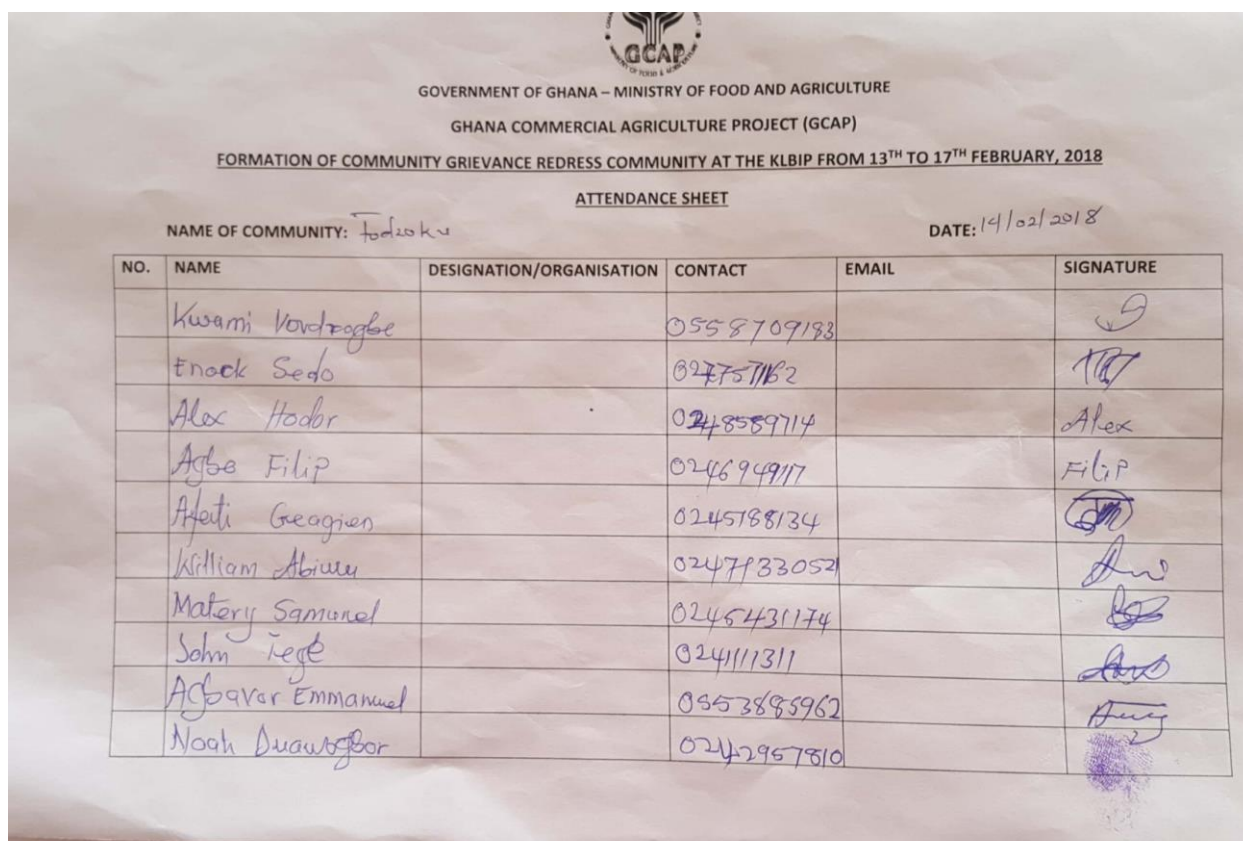 GCAP
MINISTRY OF FOOD & AGRICULTURE
GOVERNMENT OF GHANA – MINISTRY OF FOOD AND AGRICULTURE
GHANA COMMERCIAL AGRICULTURE PROJECT (GCAP)
FORMATION OF COMMUNITY GRIEVANCE REDRESS COMMUNITY AT THE KLBIP FROM 13TH TO 17TH FEBRUARY, 2018
ATTENDANCE SHEET
NAME OF COMMUNITY: Fodzoku DATE: 14/02/2018
NO. NAME DESIGNATION/ORGANISATION CONTACT EMAIL SIGNATURE
Kwami Vovdzogbe 0558709183
Enock Sedo
Alex Hodor 0248589714 Alex
Agbe Filip 0246949117 Filip
Afeiti Geagien 0245188134
William Abiwu
Matery Samunel 0245431174
John Tege 0241111311
Agbavor Emmanuel 0553885962
Noah 0242957810